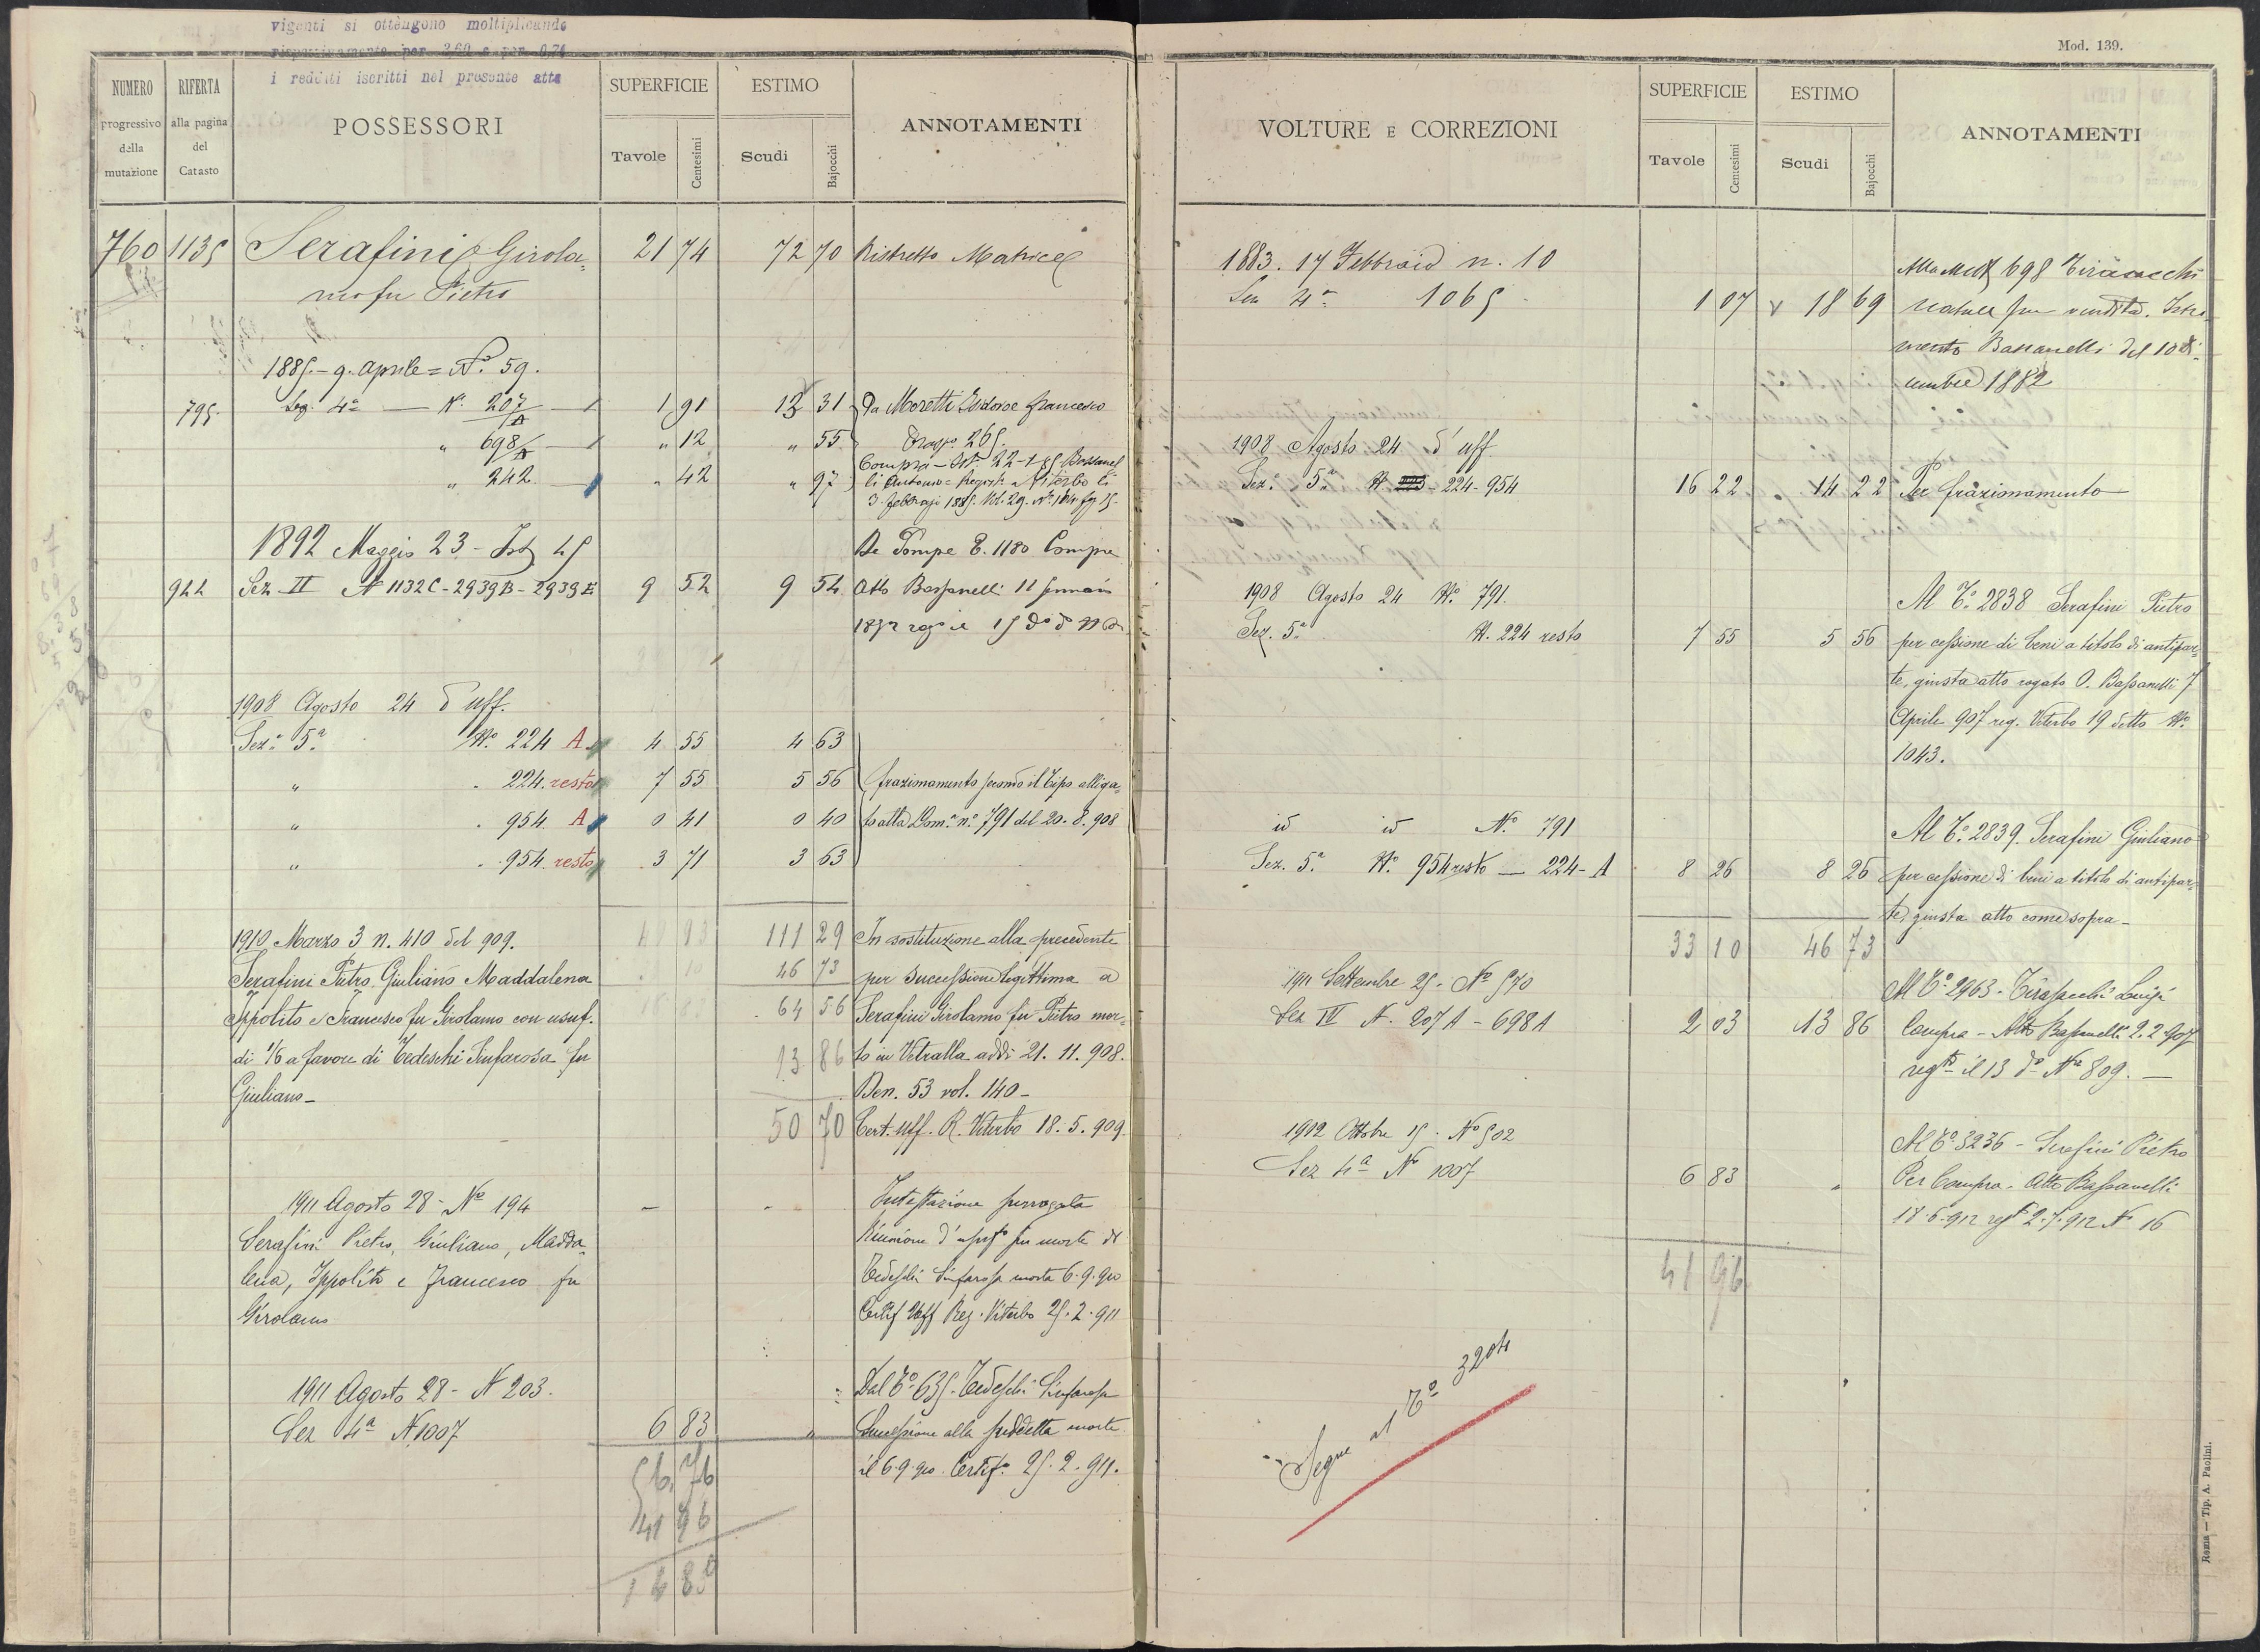 vigenti si ottengono moltiplicando
rispettivamente per 3,60 e per 0,74
i redditi iscritti nel presente atto
NUMERO
progressivo
della
mutazione
RIFERTA
alla pagina
del
Catasto
POSSESSORI
SUPERFICIE
Tavole
Centesimi
ESTIMO
Scudi
Bajocchi
ANNOTAMENTI
760 1135 Serafini Girola=
21 74 72 70 Ristretto Matrice
mo fu Pietro
1885.- 9. Aprile = N.º 59.
795. Sez. 4ª — N. 207/A — 1 91 12 31 Da Moretti Isidoro Francesco
" 698/A — " 12 " 55 265.
" 242 — " 42 " 97 Compra - Ist. 22-1 85 Bassanel
li Antonio = Registr. a Viterbo li
3. Febbrajo 1885. Vol. 29. Nº
1892 Maggio 23 - 45 De Pompe 1180 Compra
922 Sez II N 1132 C - 2939 B - 2939 E 9 52 9 54 Atto Bassanelli 11 Gennaio
1908 Agosto 24 d'uff.
Sez.ª 5.ª Nº 224 A 4 55 4 63
" . 224 resto 7 55 5 56 frazionamento secondo il tipo alliga=
" . 954 A 0 41 0 40 to alla Dom.ª n.º 791 del 20.8.908
" . 954 resto 3 71 3 63
1910 Marzo 3 n. 410 del 909. 49 93 111 29 In sostituzione alla precedente
Serafini Pietro Giuliano Maddalena 46 73 per successione legittima a
Ippolito e Francesco fu Girolamo con usuf. 64 56 Serafini Girolamo fu Pietro mor=
di 1/6 a favore di Tedeschi Sinfarosa fu 13 86 to in Vetralla addì 21.11.908.
Giuliano - Den. 53 vol. 140 -
50 70 Cert. uff. R. Viterbo 18.5.909.
1911 Agosto 28 - Nº 194 Intestazione surrogata
Serafini Pietro, Giuliano, Madda= Riunione d'usufº per morte di
lena, Ippolito e Francesco fu Tedeschi Sinfarosa morta 6.9.910
Girolamo Certif Uff Reg. Viterbo 25.2.911
1911 Agosto 28 - N 203. Dal Tº 635. Tedeschi Sinfarosa
Sez 4ª N 1007 6 83 " Successione alla suddetta morta
56,76 il 6.9.910. Certifº. 25.2.911.
41 96
14 80
Mod. 139.
VOLTURE E CORREZIONI
SUPERFICIE
Tavole
Centesimi
ESTIMO
Scudi
Bajocchi
ANNOTAMENTI
1883. 17 Febbraio n. 10
Sez 4ª 1065 1 07 18 69
698
per vendita. Istru=
mento Bassanelli del 10 di=
cembre 1882
1908 Agosto 24 d'uff
Sez.ª 5ª N. 224-954 16 22 14 22 Per frazionamento
1908 Agosto 24 Nº 791.
Sez. 5.ª N. 224 resto 7 55 5 56
Al Tº 2838 Serafini Pietro
per cessione di beni a titolo di antipar=
te, giusta atto rogato O. Bassanelli 7
Aprile 907 reg. Viterbo 19 detto Nº
1043.
id id Nº 791
Sez. 5.ª Nº 954 resto — 224-A 8 26 8 26
Al Tº 2839. Serafini Giuliano
per cessione di beni a titolo di antipar=
te, giusta atto come sopra -
33 10 46 73
1911 Settembre 25. Nº 570
Sez IV N. 207 A - 698 A 2 03 13 86
Al Tº 2963 - Luigi
Compra - Atto Bassanelli 2.2.907
regto il 13 dº Nº 809. —
1912 Ottobre 15. Nº 502
Sez 4ª Nº 1007 6 83 "
Al Tº 3236 - Serafini Pietro
Per Compra - Atto Bassanelli
18.6.912 regº 2.7.912 Nº 16
41 96
Segue al Tº 3204
Roma — Tip. A. Paolini.